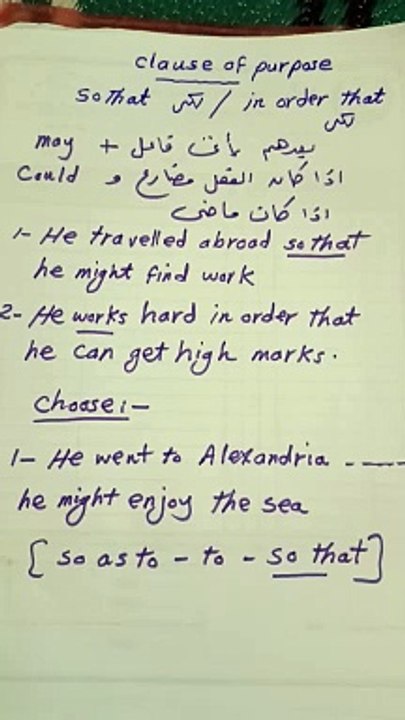 clause of purpose
so that لكى / in order that
لكى
بعدهم يأتى فاعل + may
اذا كان الفعل مضارع و Could
اذا كان ماضى
1- He travelled abroad so that
he might find work
2- He works hard in order that
he can get high marks.
Choose:-
1- He went to Alexandria -----
he might enjoy the sea
[so as to - to - so that]